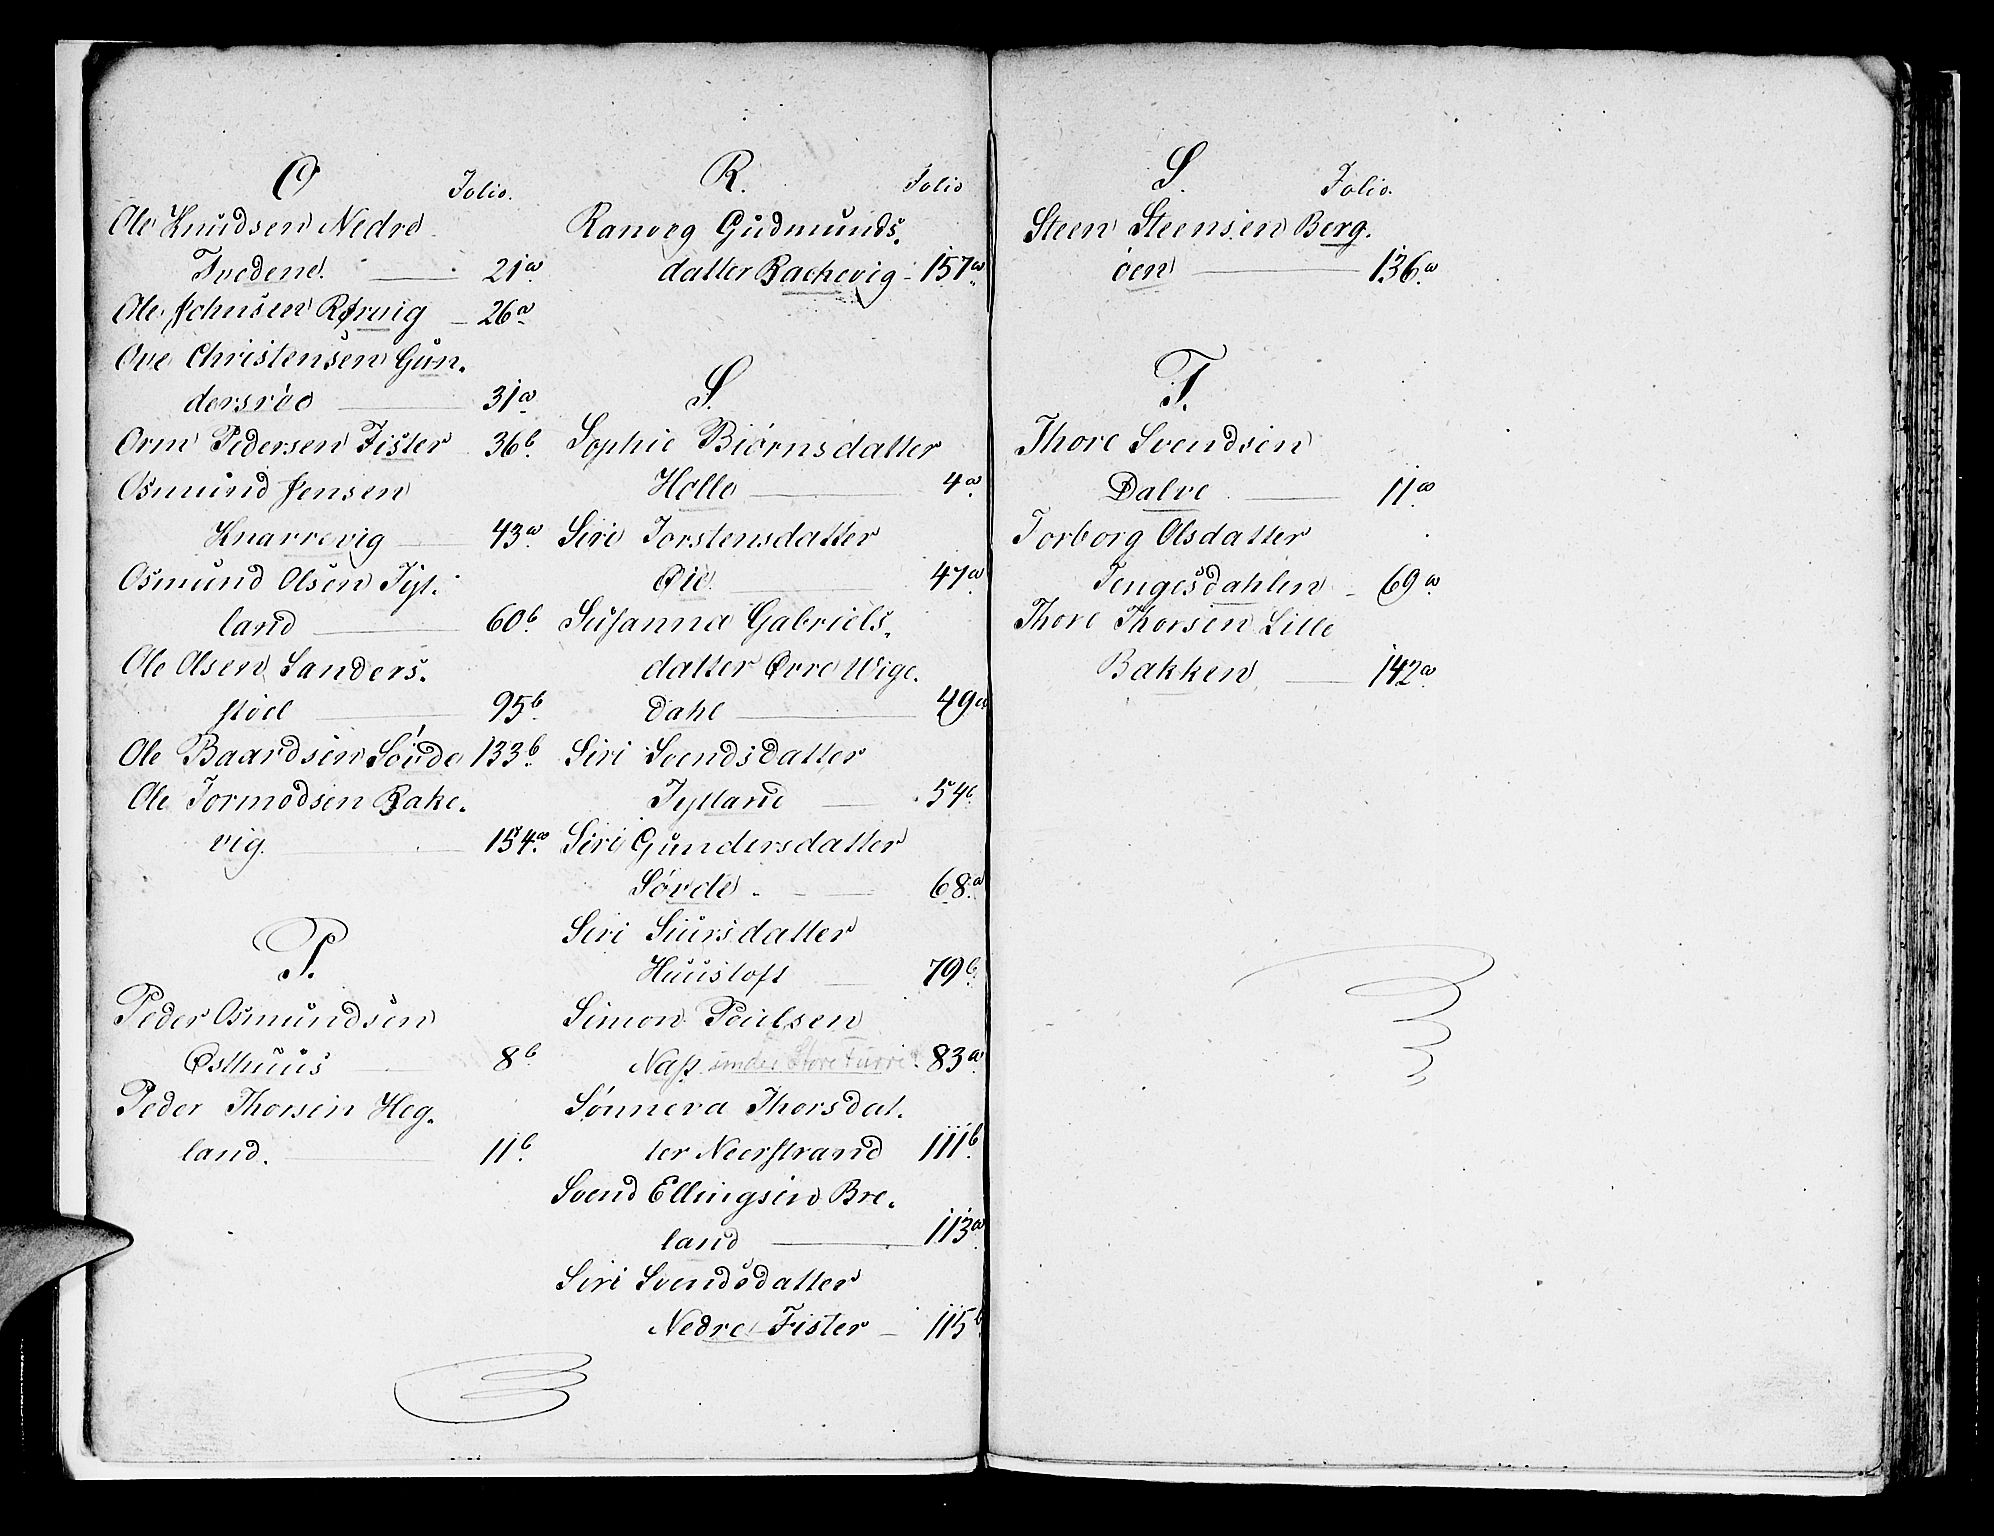 O
Folio.
Ole Knudsen Nedre
Tvedene. 21a.
Ole Johnsen Rørvig 26a.
Ove Christensen Gun-
dersröe 31a.
Orm Pedersen Fister 36b.
Osmund Jensen
Knarrevig 43a.
Osmund Olsen Tyt-
land 60b.
Ole Olsen Sanders-
støel 95b.
Ole Baardsen Søvde 133b.
Ole Tormodsen Rake-
vig. 154a.
P.
Peder Osmundsen
Østhuus 8b.
Peder Thorsen Heg-
land. 11b.
R.
Folio
Ranveg Gudmunds-
datter Rackevig 157a.
S.
Sophie Biørnsdatter
Halle 4a.
Siri Torstensdatter
Øie 47a.
Susanna Gabriels-
datter Øvre Vige-
dahl 49a
Siri Svendsdatter
Tytland 54b.
Siri Gundersdatter
Sövde. 68a
Siri Siursdatter
Huustoft 79b.
Simon Poulsen
Næss under Store 83a.
Sønneva Thorsdat-
ter Neerstrand 111b.
Svend Ellingsen Bre-
land 113a.
Siri Svendsdatter
Nedre Fister 115b.
S.
Folio.
Steen Steensen Berg-
øen 136a.
T.
Thore Svendsen
Dalve 11a.
Torborg Olsdatter
Tengesdahlen 69a.
Thore Thorsen Lille
Bakken 142a.